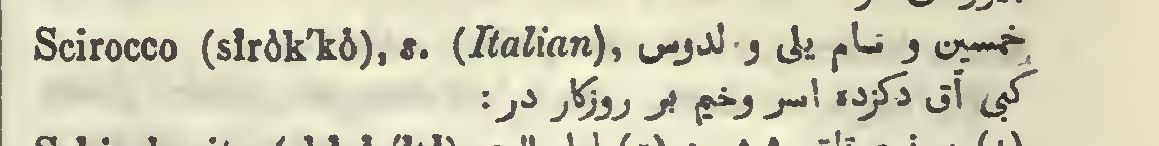 Scirocco (sĭrŏk′kŏ), s. (Italian), خمسین و سام یلی و لدوس
کبی آق دکزده اسر وخیم بر روزکار در :